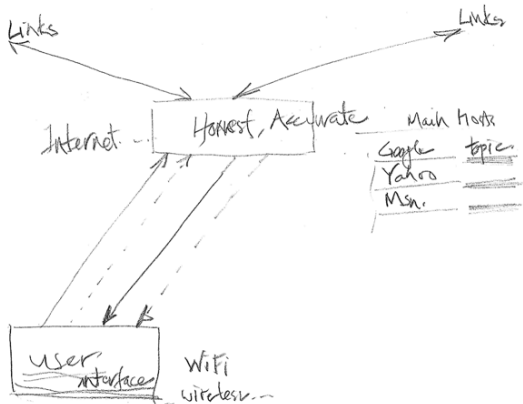 Links
Links
Internet...
Honest, Accurate
Main Hosts
Google topic
Yahoo
Msn.
user
interface
WiFi
wireless...